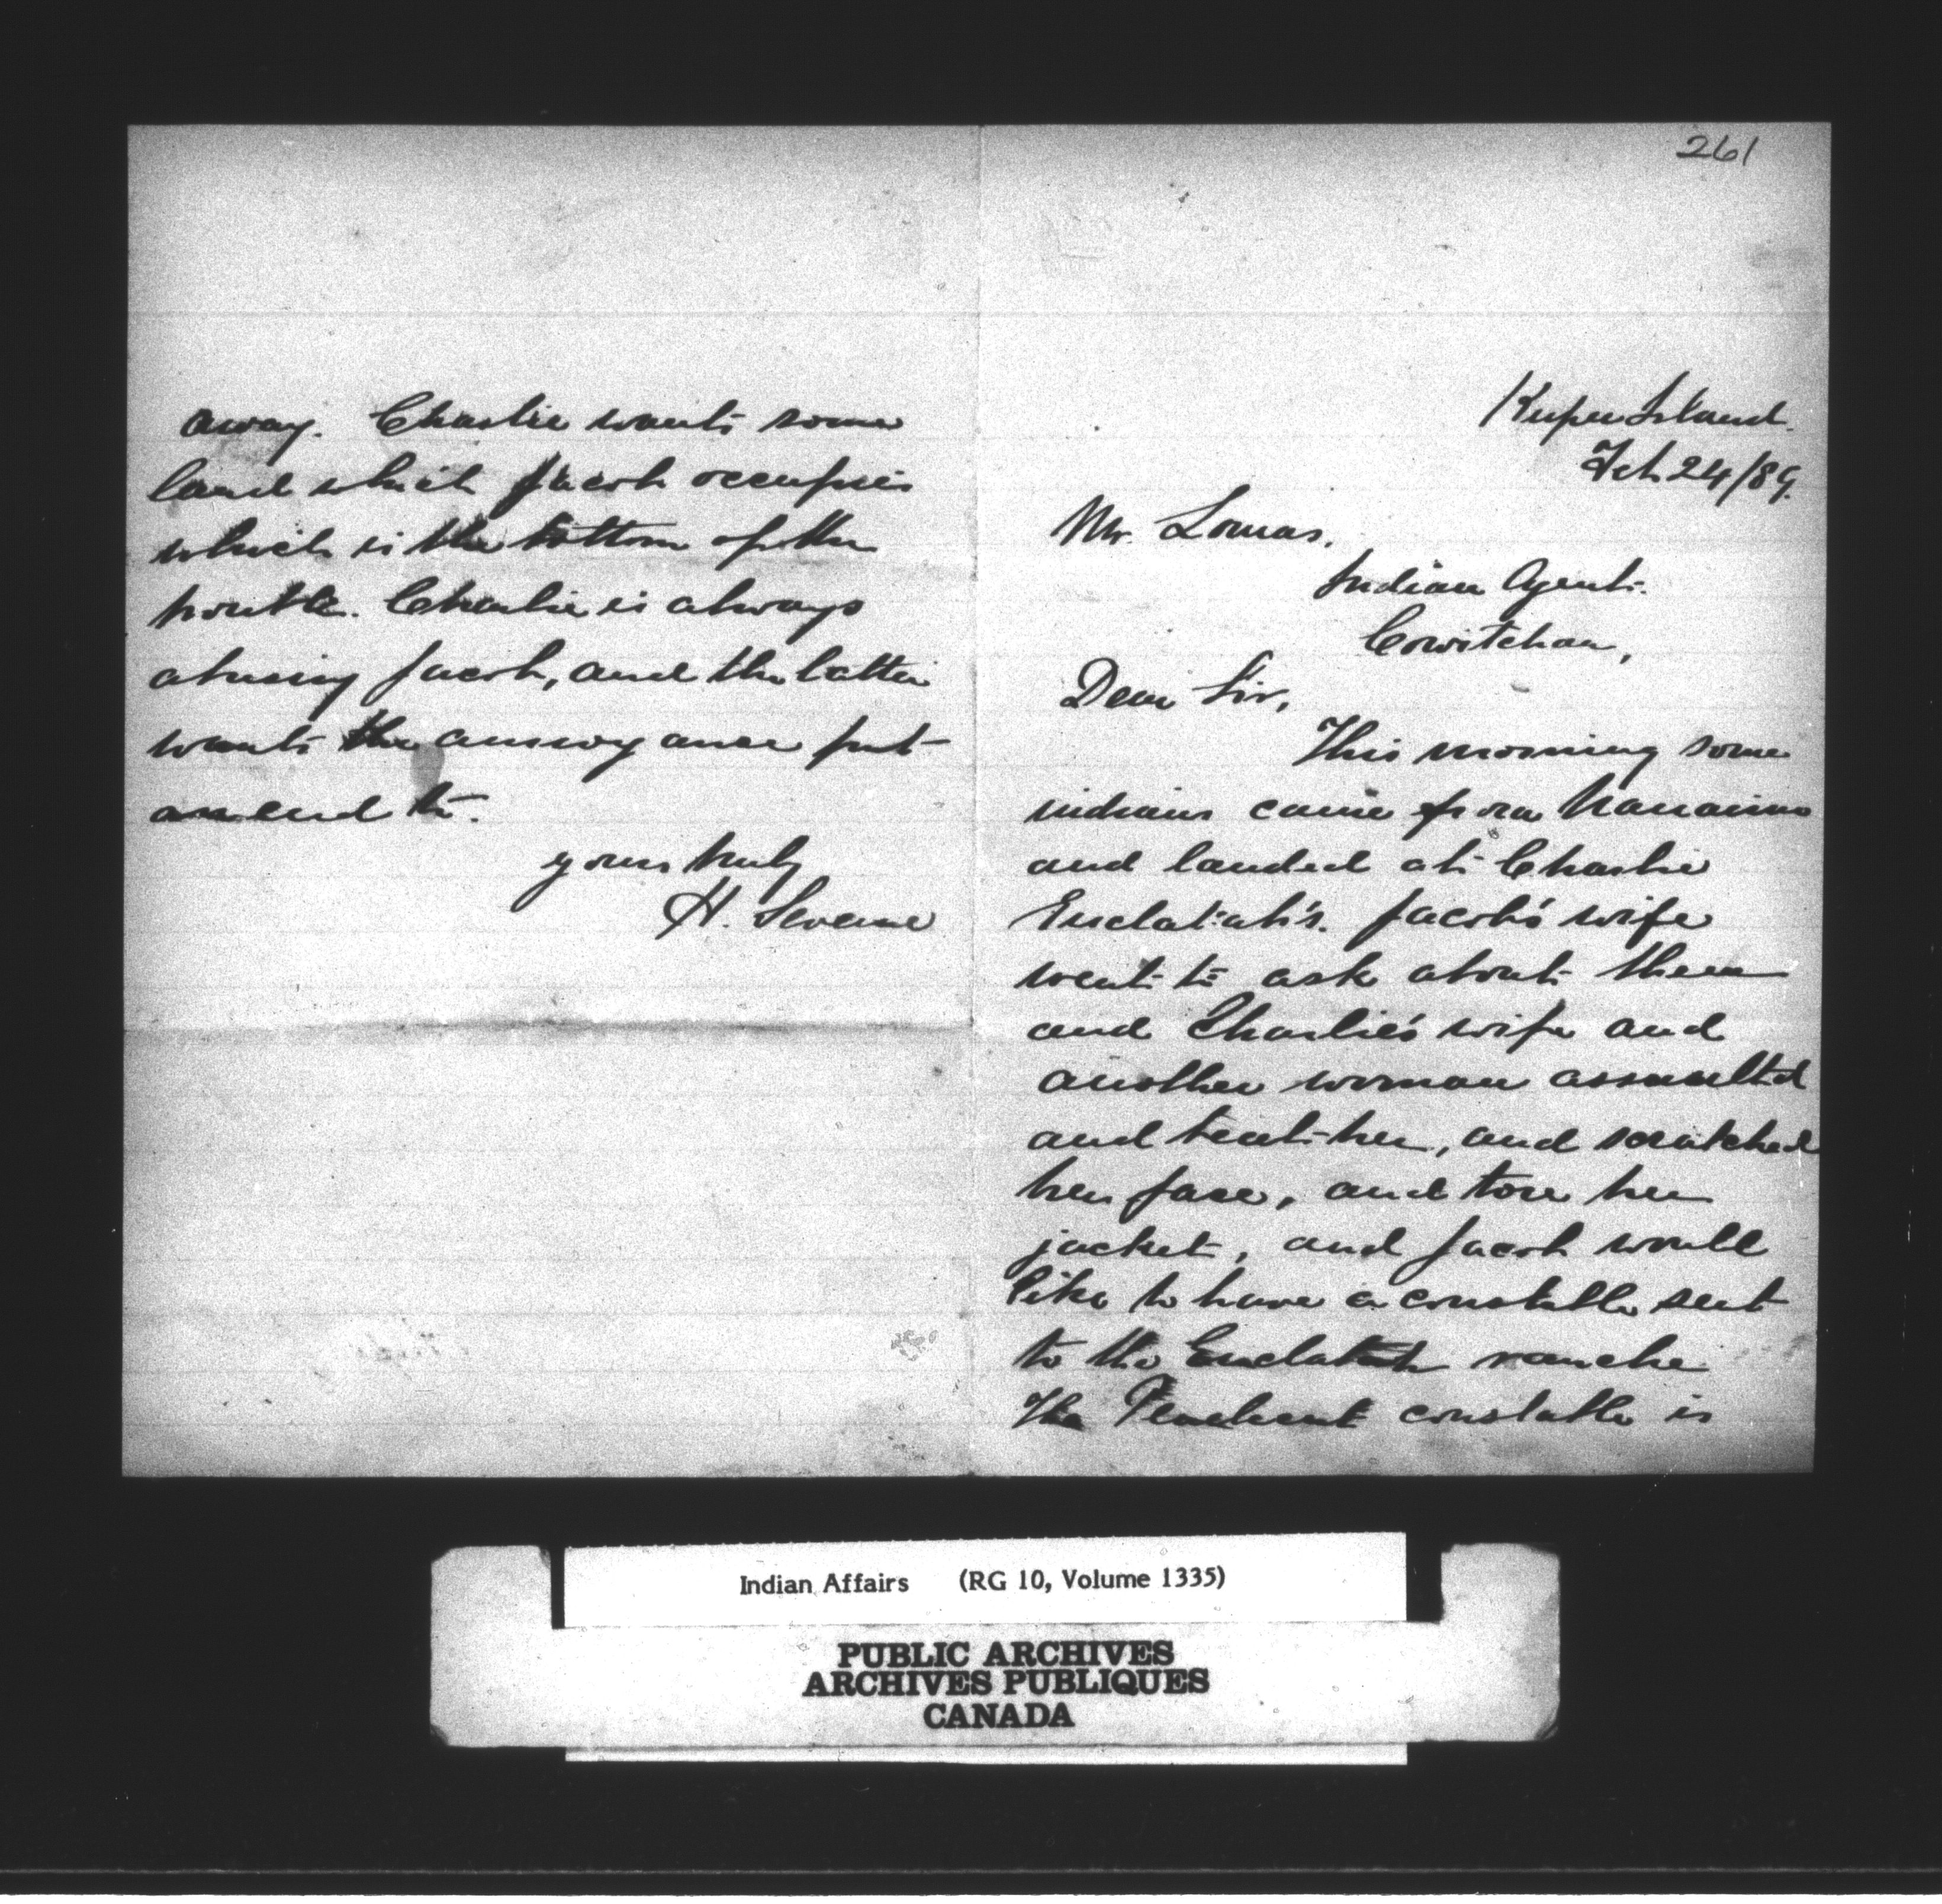 261
Kuper Island.
Feb 24/89.
Mr. Lomas,
Indian Agent.
Cowitchan,
Dear Sir,
This morning some
indians came from Nanaimo
and landed at Charlie
Jacob's wife
went to ask about them
and Charlie's wife and
another woman assaulted
and beat her, and scratched
her face, and tore her
jacket, and Jacob would
like to have a constable sent
to the ranche
The Penelacut constable is
away. Charlie wants some
land which Jacob occupies
which is the bottom of the
trouble. Charlie is always
abusing Jacob, and the latter
wants the annoyance put
an end to.
yours truly
H.
Indian Affairs (RG 10, Volume 1335)
PUBLIC ARCHIVES
ARCHIVES PUBLIQUES
CANADA